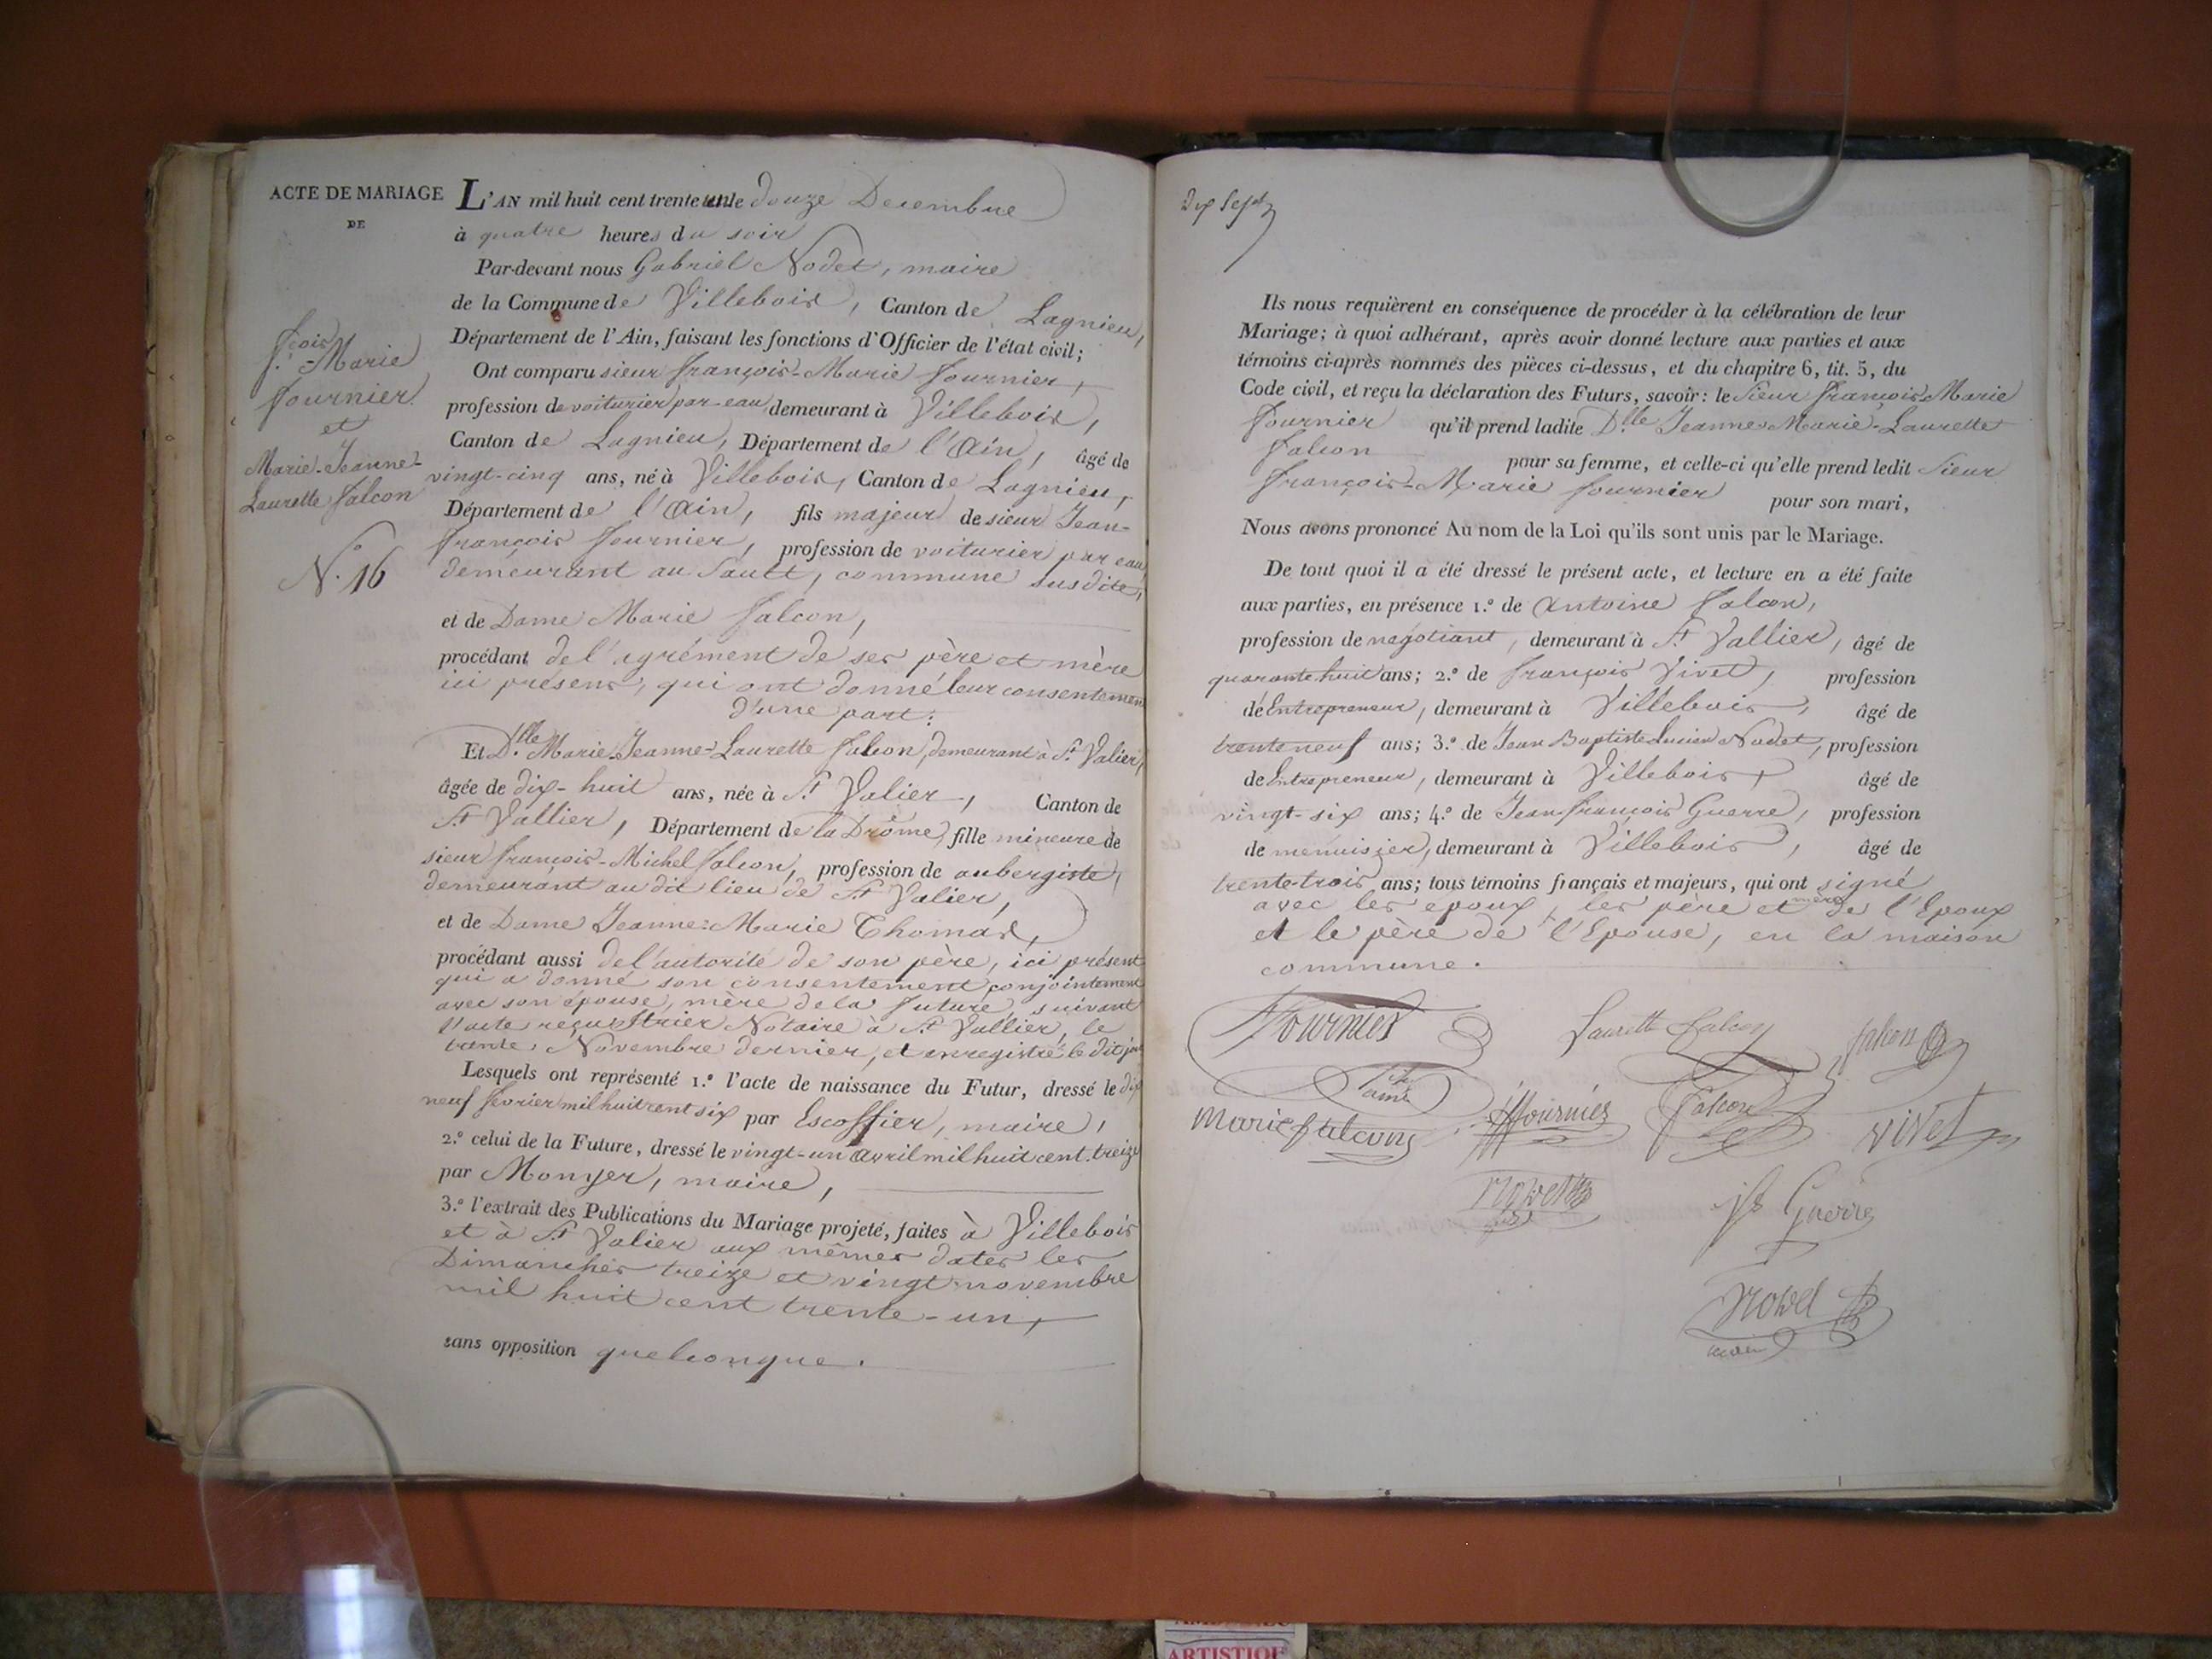 ACTE DE MARIAGE
DE
f.çois-Marie
fournier
et
Marie-Jeanne-
Laurette falcon
N.° 16
L'AN mil huit cent trente un le douze Decembre
à quatre heures du soir
Par-devant nous Gabriel Nodet, maire
de la Commune de Villebois, Canton de Lagnieu,
Département de l'Ain, faisant les fonctions d'Officier de l'état civil;
Ont comparu sieur françois-Marie fournier,
profession de voiturier par-eau, demeurant à Villebois,
Canton de Lagnieu, Département de l'Ain, âgé de
vingt-cinq ans, né à Villebois, Canton de Lagnieu,
Département de l'Ain, fils majeur de sieur Jean-
françois fournier, profession de voiturier par eau,
demeurant au Sault, commune susdite,
et de Dame Marie falcon,
procédant de l'agrément de ses père et mère
ici présens, qui ont donné leur consentement
d'une part:
Et D.lle Marie-Jeanne-Laurette falcon, demeurant à S.t Valier,
âgée de dix-huit ans, née à S.t Valier, Canton de
S.t Vallier, Département de la Drôme, fille mineure de
sieur françois-Michel falcon, profession de aubergiste,
demeurant au dit lieu de S.t Valier,
et de Dame Jeanne-Marie Thomas,
procédant aussi de l'autorité de son père, ici présent
qui a donné son consentement conjointement
avec son épouse, mère de la future, suivant
l'acte reçu Notaire à S.t Vallier, le
trente Novembre dernier, et enregistré le dit jour
Lesquels ont représenté 1.° l'acte de naissance du Futur, dressé le dix
neuf fevrier mil huit cent six par Escoffier, maire,
2.° celui de la Future, dressé le vingt-un avril mil huit cent treize
par Monyer, maire,
3.° l'extrait des Publications du Mariage projeté, faites à Villebois
et à S.t Valier aux mêmes dates les
Dimanches treize et vingt novembre
mil huit cent trente-un,
sans opposition quelconque.
Dix Sept
Ils nous requièrent en conséquence de procéder à la célébration de leur
Mariage; à quoi adhérant, après avoir donné lecture aux parties et aux
témoins ci-après nommés des pièces ci-dessus, et du chapitre 6, tit. 5, du
Code civil, et reçu la déclaration des Futurs, savoir: le Sieur françois-Marie
fournier qu'il prend ladite D.lle Jeanne-Marie-Laurette
falcon pour sa femme, et celle-ci qu'elle prend ledit Sieur
françois-Marie fournier pour son mari,
Nous avons prononcé Au nom de la Loi qu'ils sont unis par le Mariage.
De tout quoi il a été dressé le présent acte, et lecture en a été faite
aux parties, en présence 1.° de Antoine falcon,
profession de négotiant, demeurant à S.t Vallier, âgé de
quarante huit ans; 2.° de françois Vivet, profession
de Entrepreneur, demeurant à Villebois, âgé de
trente neuf ans; 3.° de Jean Baptiste Lucien Nodet, profession
de Entrepreneur, demeurant à Villebois, âgé de
vingt-six ans; 4.° de Jean-françois Guerre, profession
de menuisier, demeurant à Villebois, âgé de
trente-trois ans; tous témoins français et majeurs, qui ont signé
avec les époux, les père et mère de l'Epoux
et le père de l'Epouse, en la maison
commune.
Fournier Laurette falcon falcon
Marie falcon fournier Falcon VIVET
Nodet jf Guerre
Nodet
maire